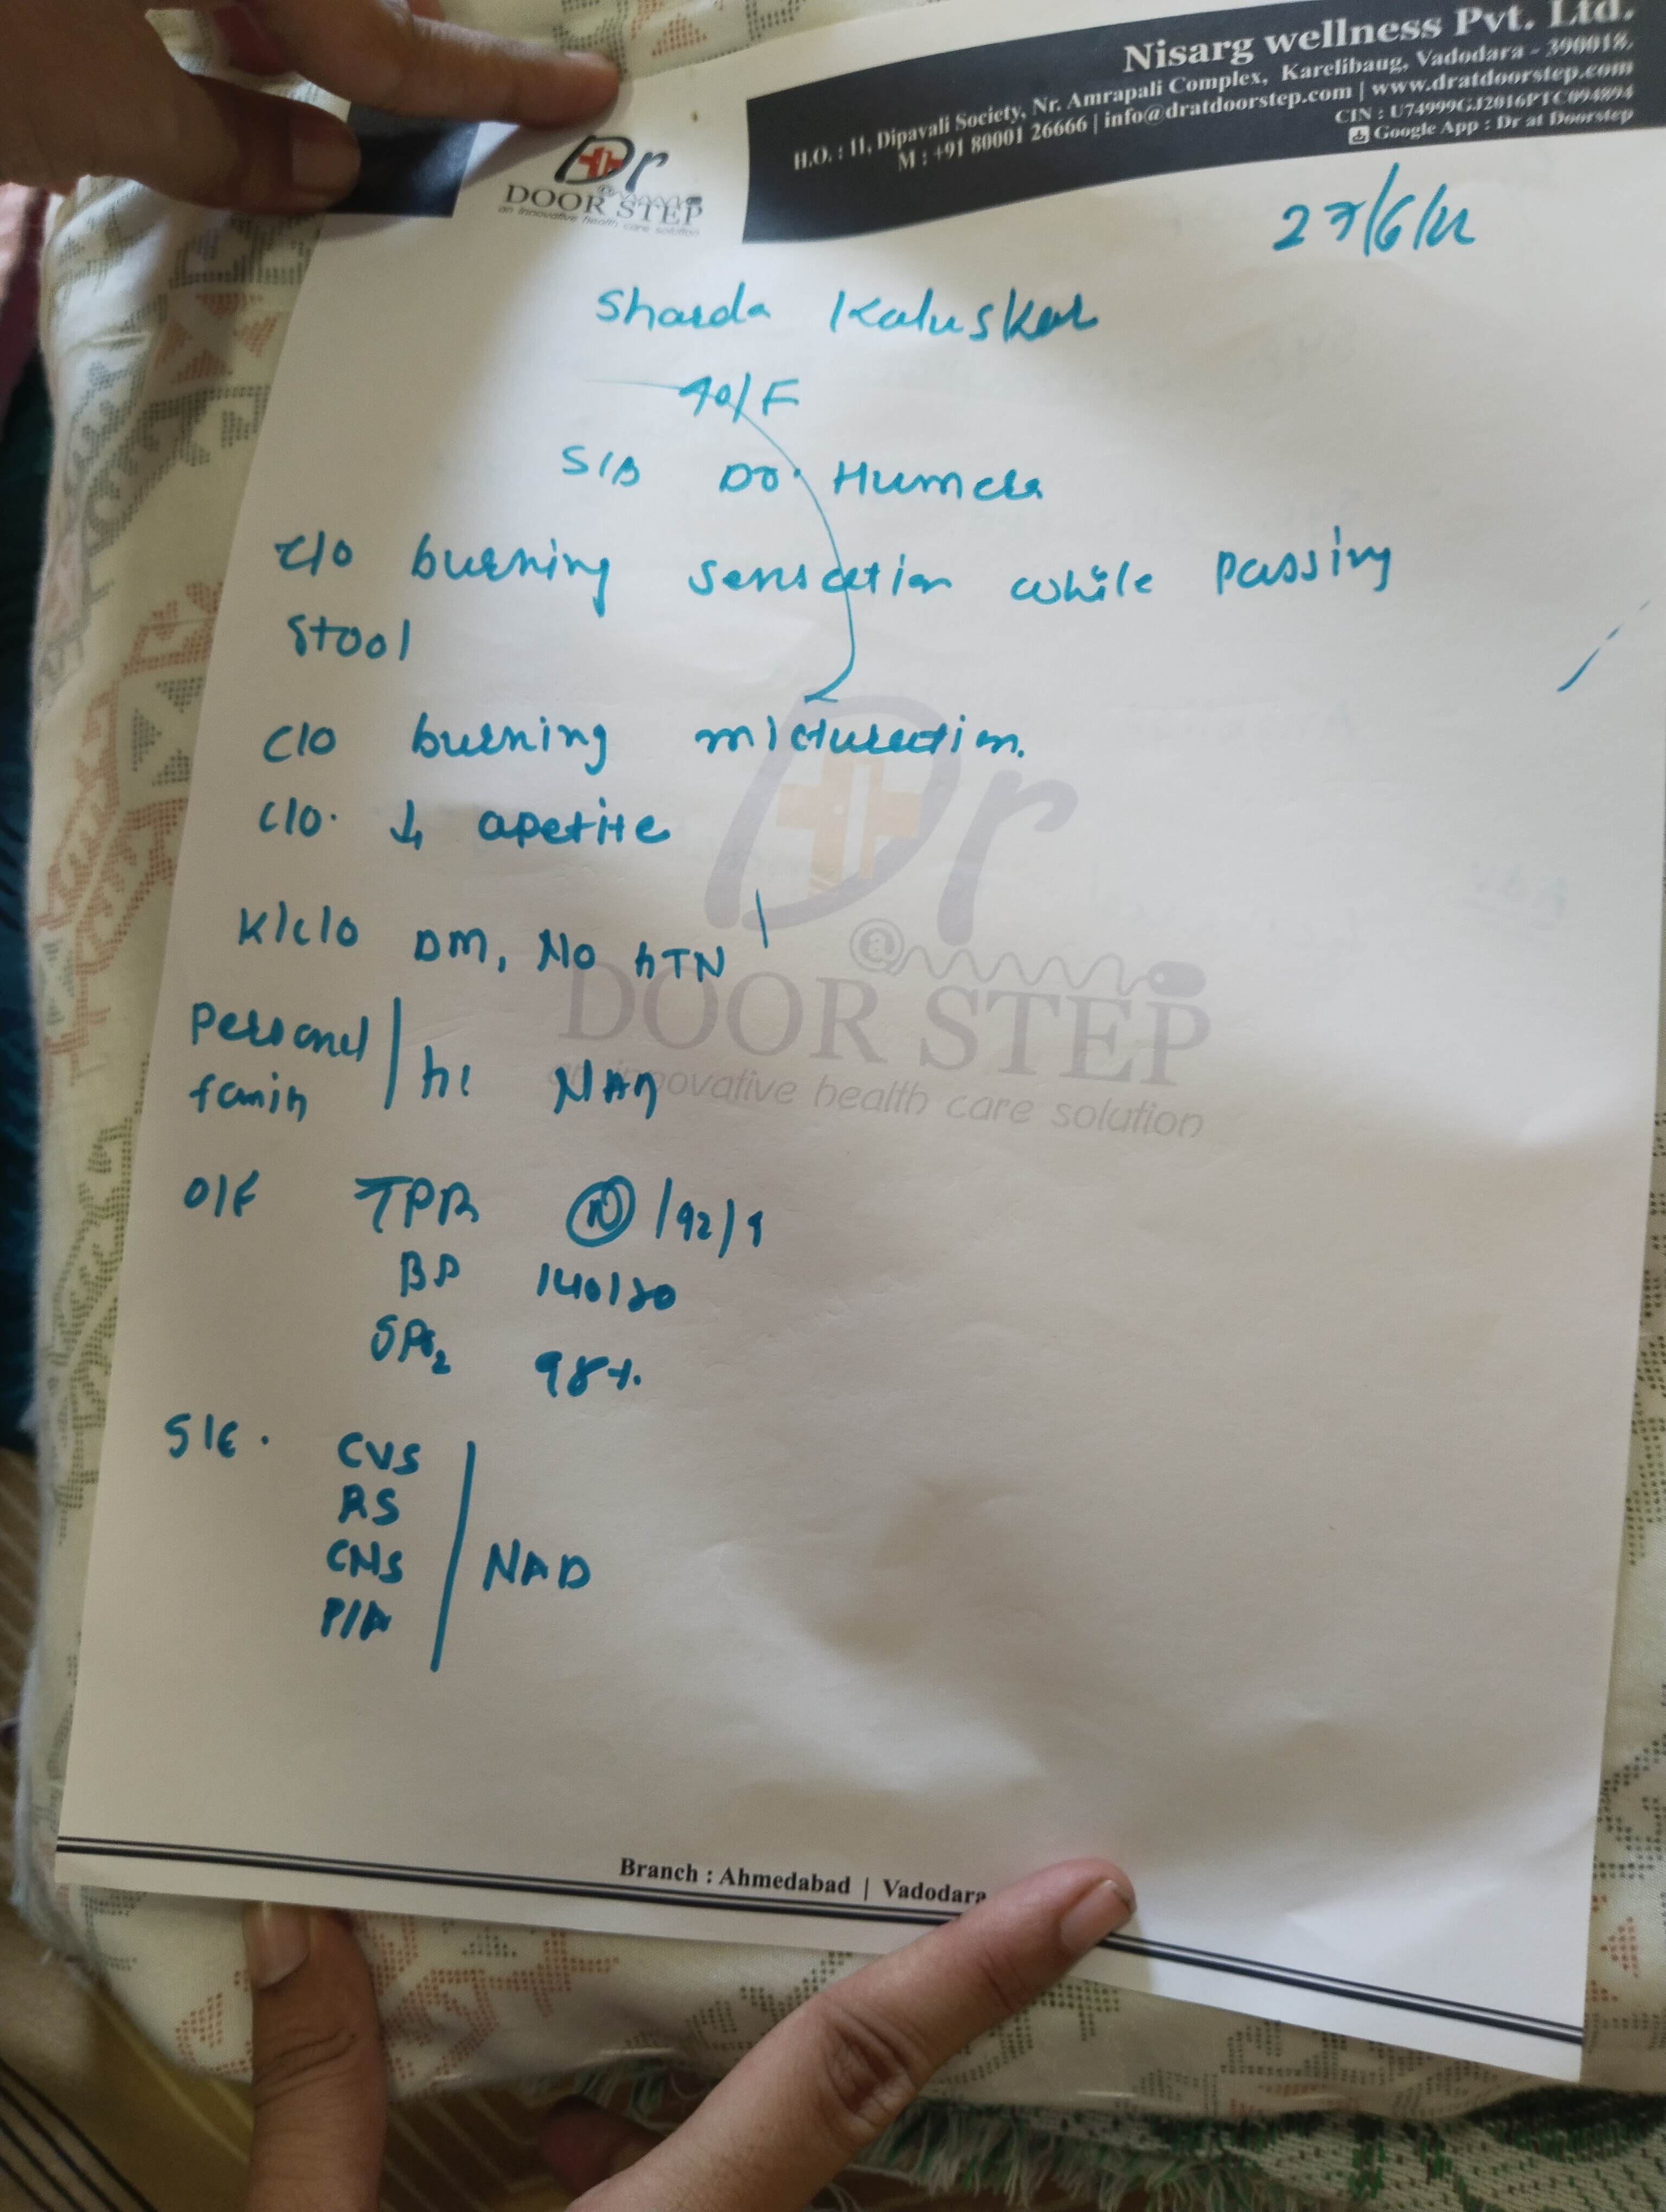 Nisarg wellness Pvt. Ltd.
H.O. : 11, Dipavali Society, Nr. Amrapali Complex, Karelibaug, Vadodara - 390018.
M : +91 80001 26666 | info@dratdoorstep.com | www.dratdoorstep.com
CIN : U74999GJ2016PTC094894
Google App : Dr at Doorstep
Dr
@
DOOR STEP
an innovative health care solution
27/6/22
Sharda Kaluskar
90/F
S/B Dr. Humera
C/O burning sensation while passing
stool
C/O burning micturation.
C/O. ↓ apetite
K/C/O DM, No hTN
Personal
family
h/ NAD
O/E TPR (N) /92/
BP 140/80
SPO2 98%.
S/E.
CVS
RS
CNS
P/A
NAD
Dr
@
DOOR STEP
an innovative health care solution
Branch : Ahmedabad | Vadodara